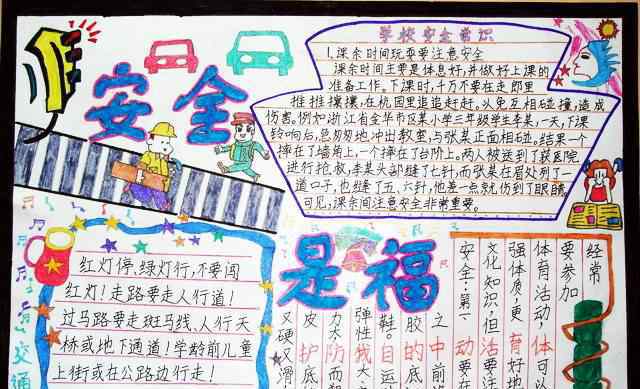 安全
学校安全常识
1.课余时间玩耍要注意安全
课余时间主要是休息好,并做好上课的
准备工作。下课时,千万不要在走郎里
推推攘攘,在校园里追追赶赶。以免互相碰撞,造成
伤害。例如浙江省金华市区某小学三年级学生李某,一天,下课
铃响后,急匆匆地冲出教室,与张某正面相碰。结果一个
摔在了墙角上,一个摔在了台阶上。两人被送到了医院
进行抢救,李某头部缝了七针,而张某在眉处列了一
道口子,也缝了五、六针,他差一点就伤到了眼睛,
可见,课余间注意安全非常重要。
是福
红灯停,绿灯行,不要闯
红灯!走路要走人行道!
过马路要走斑马线、人行天
桥或地下通道!学龄前儿童
上街或在公路边行走!
交通
经常
要参加
体育活动,体可
强体质,更育好
文化知识,但活要注
安全:第一动要在
之中前
胶的底
鞋。目运
弹性我大
力太防而
皮护底
又硬又滑